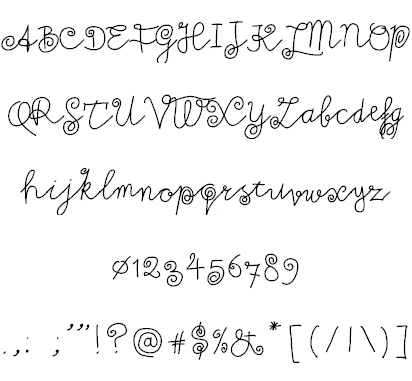 ABCDEFGHIJKLMNOP
QRSTUVWXYZabcdefg
hijklmnopqrstuvwxyz
0123456789
.,:;'"!?@#$%&*[(/|\)]